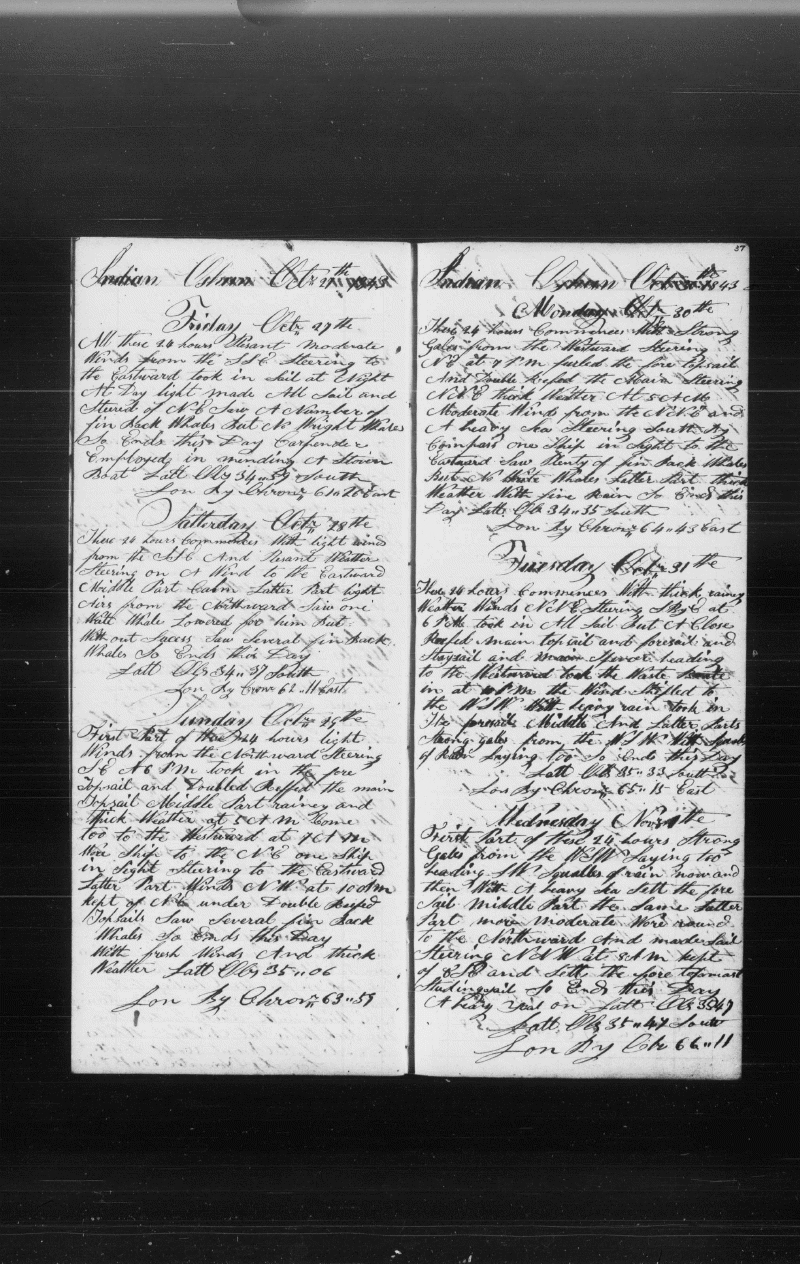 Indian Oshun Octr 27th 1843
Friday Octr 27th
All these 24 hours Plesant Moderate
Winds from the SSE Steering to
the Eastward took in Sail at Night
At Day light made All Sail and
Stered of NE Saw A Number of
fin Back Whales But No Wright Whales
So Ends this Day Carpender
Employed in mending A Stoven
Boat Latt Obs 34"59 South
Lon By Chron 61"26 East
Satterday Octr 28th
These 24 hours Commences With light winds
from the SSE And Plesant Weather
Steering on A Wind to the Eastward
Middle Part Calm Latter Part light
Airs from the Northward Saw one
Write Whale Lowered for him But
With out Sucess Saw Several fin Back
Whales So Ends this Day
Latt Obs 34"37 South
Lon By Cron 62"11 East
Sunday Octr 29th
First Part of these 24 hours light
Winds from the Northward Steering
SE At 6 PM took in the fore
Topsail and Doubled Reffed the main
Topsail Middle Part rainey and
thick Weather at 5 AM Come
too to the Westward at 7 AM
Wore Ship to the NE one Ship
in Sight Steering to the Eastward
Latter Part Winds NW at 10 AM
kept of NE under Double Reefed
Topsails Saw Several fin Back
Whales So Ends this Day
With fresh Winds And thick
Weather Latt Obs 35"06
Lon By Chron 63"59
57
Indian Oshun Octr 30th 1843
Monday Octr 30th
These 24 hours Commences With Strong
Gales from the Westward Steering
NE at 7 PM furled the fore topsail
And Double Reefed the Main Steering
NNE thick Weather At 5 AM
Moderate Winds from the NNE and
A heavy Sea Steering South By
Compass one Ship in Sight to the
Eastward Saw Plenty of fin Back Whales
But No Write Whales Latter Part thick
Weather With fine Rain So Ends this
Day Latt Obs 34"35 South
Lon By Chron 64"43 East
Tuesday Octr 31th
These 24 hours Commences With thick rainey
Weather Winds NNE Stering SByE at
6 PM took in All Sail But A Close
Reefed main topsail and foresail and
Staysail and main Spencer heading
to the Westward took the Waste
in at PM the Wind Shifted to
the WSW With hevey rain took in
The foresail Middle And Latter Parts
Strong gales from the WSW With
of Rain Laying too So Ends this Day
Latt Obs 35"33 South
Lon By Chron 65"15 East
Wednesday Nov 1th
First Part of these 24 hours Strong
Gales from the WSW Laying too
heading SW Squalles of rain now and
then With A heavy Sea Sett the fore
Sail Middle Part the Same Latter
Part more Moderate Wore round
to the Northward And made Sail
Steering NNW at 8 AM kept
of ESE and Sett the fore topmast
Studingsail So Ends this Day
A heavy on Latt Obs 3547
Latt Obs 35"47 South
Lon By Chr 66"11